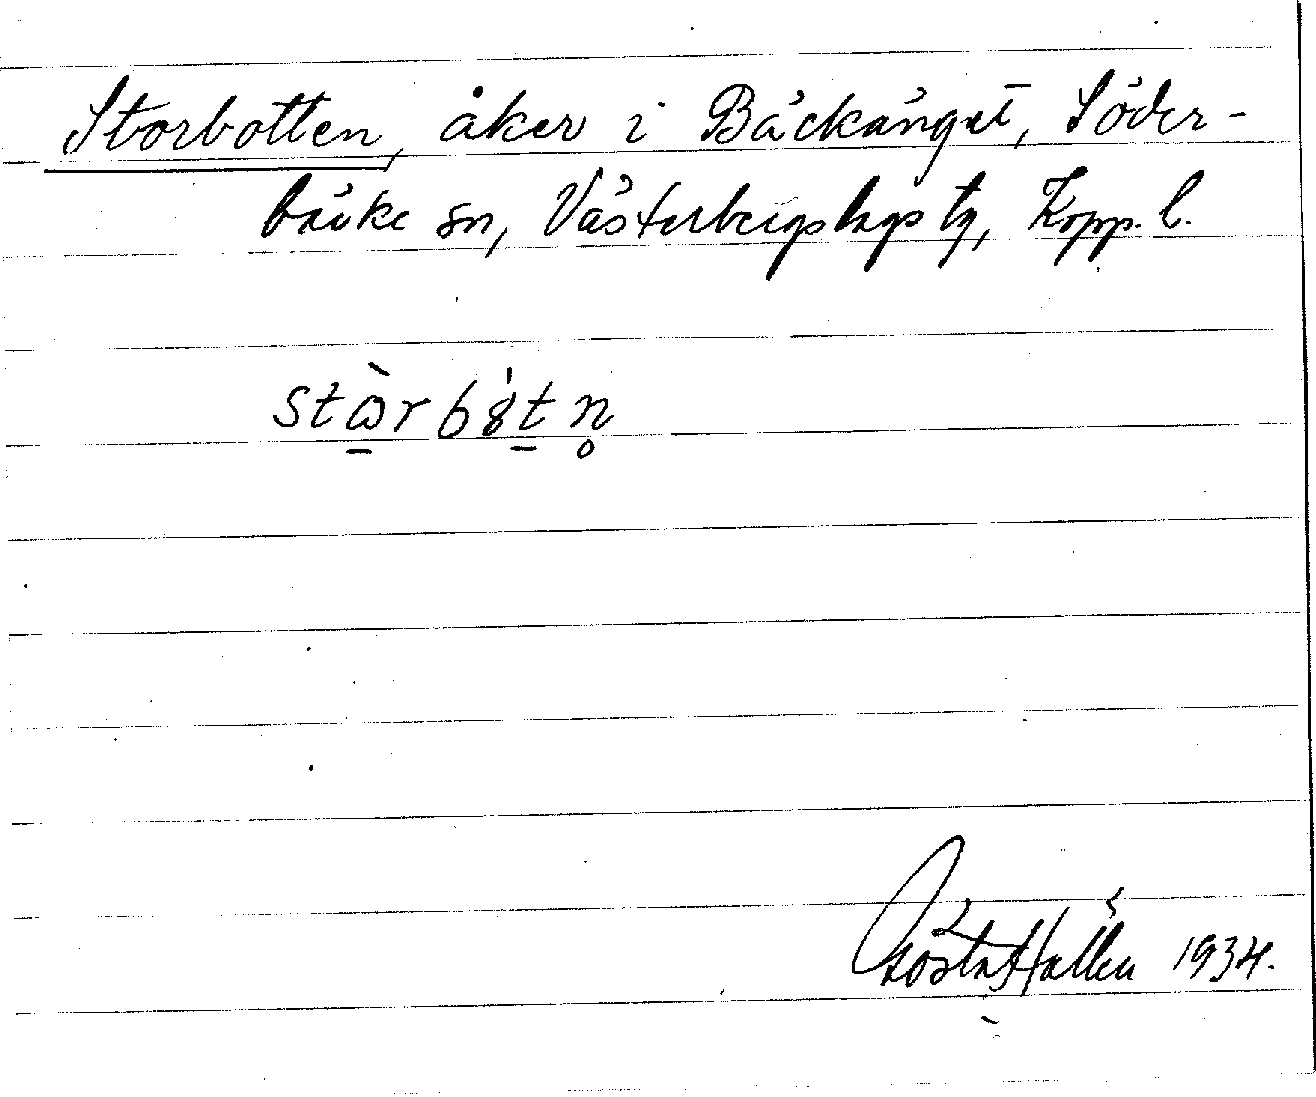 Storbotten, åker i Bäckänget, Söder-
bärke sn, Västerbergslags tg, Kopp. l.
stɷ̠̀rb8̍t̠n̥
Gösta Hallén 1934.